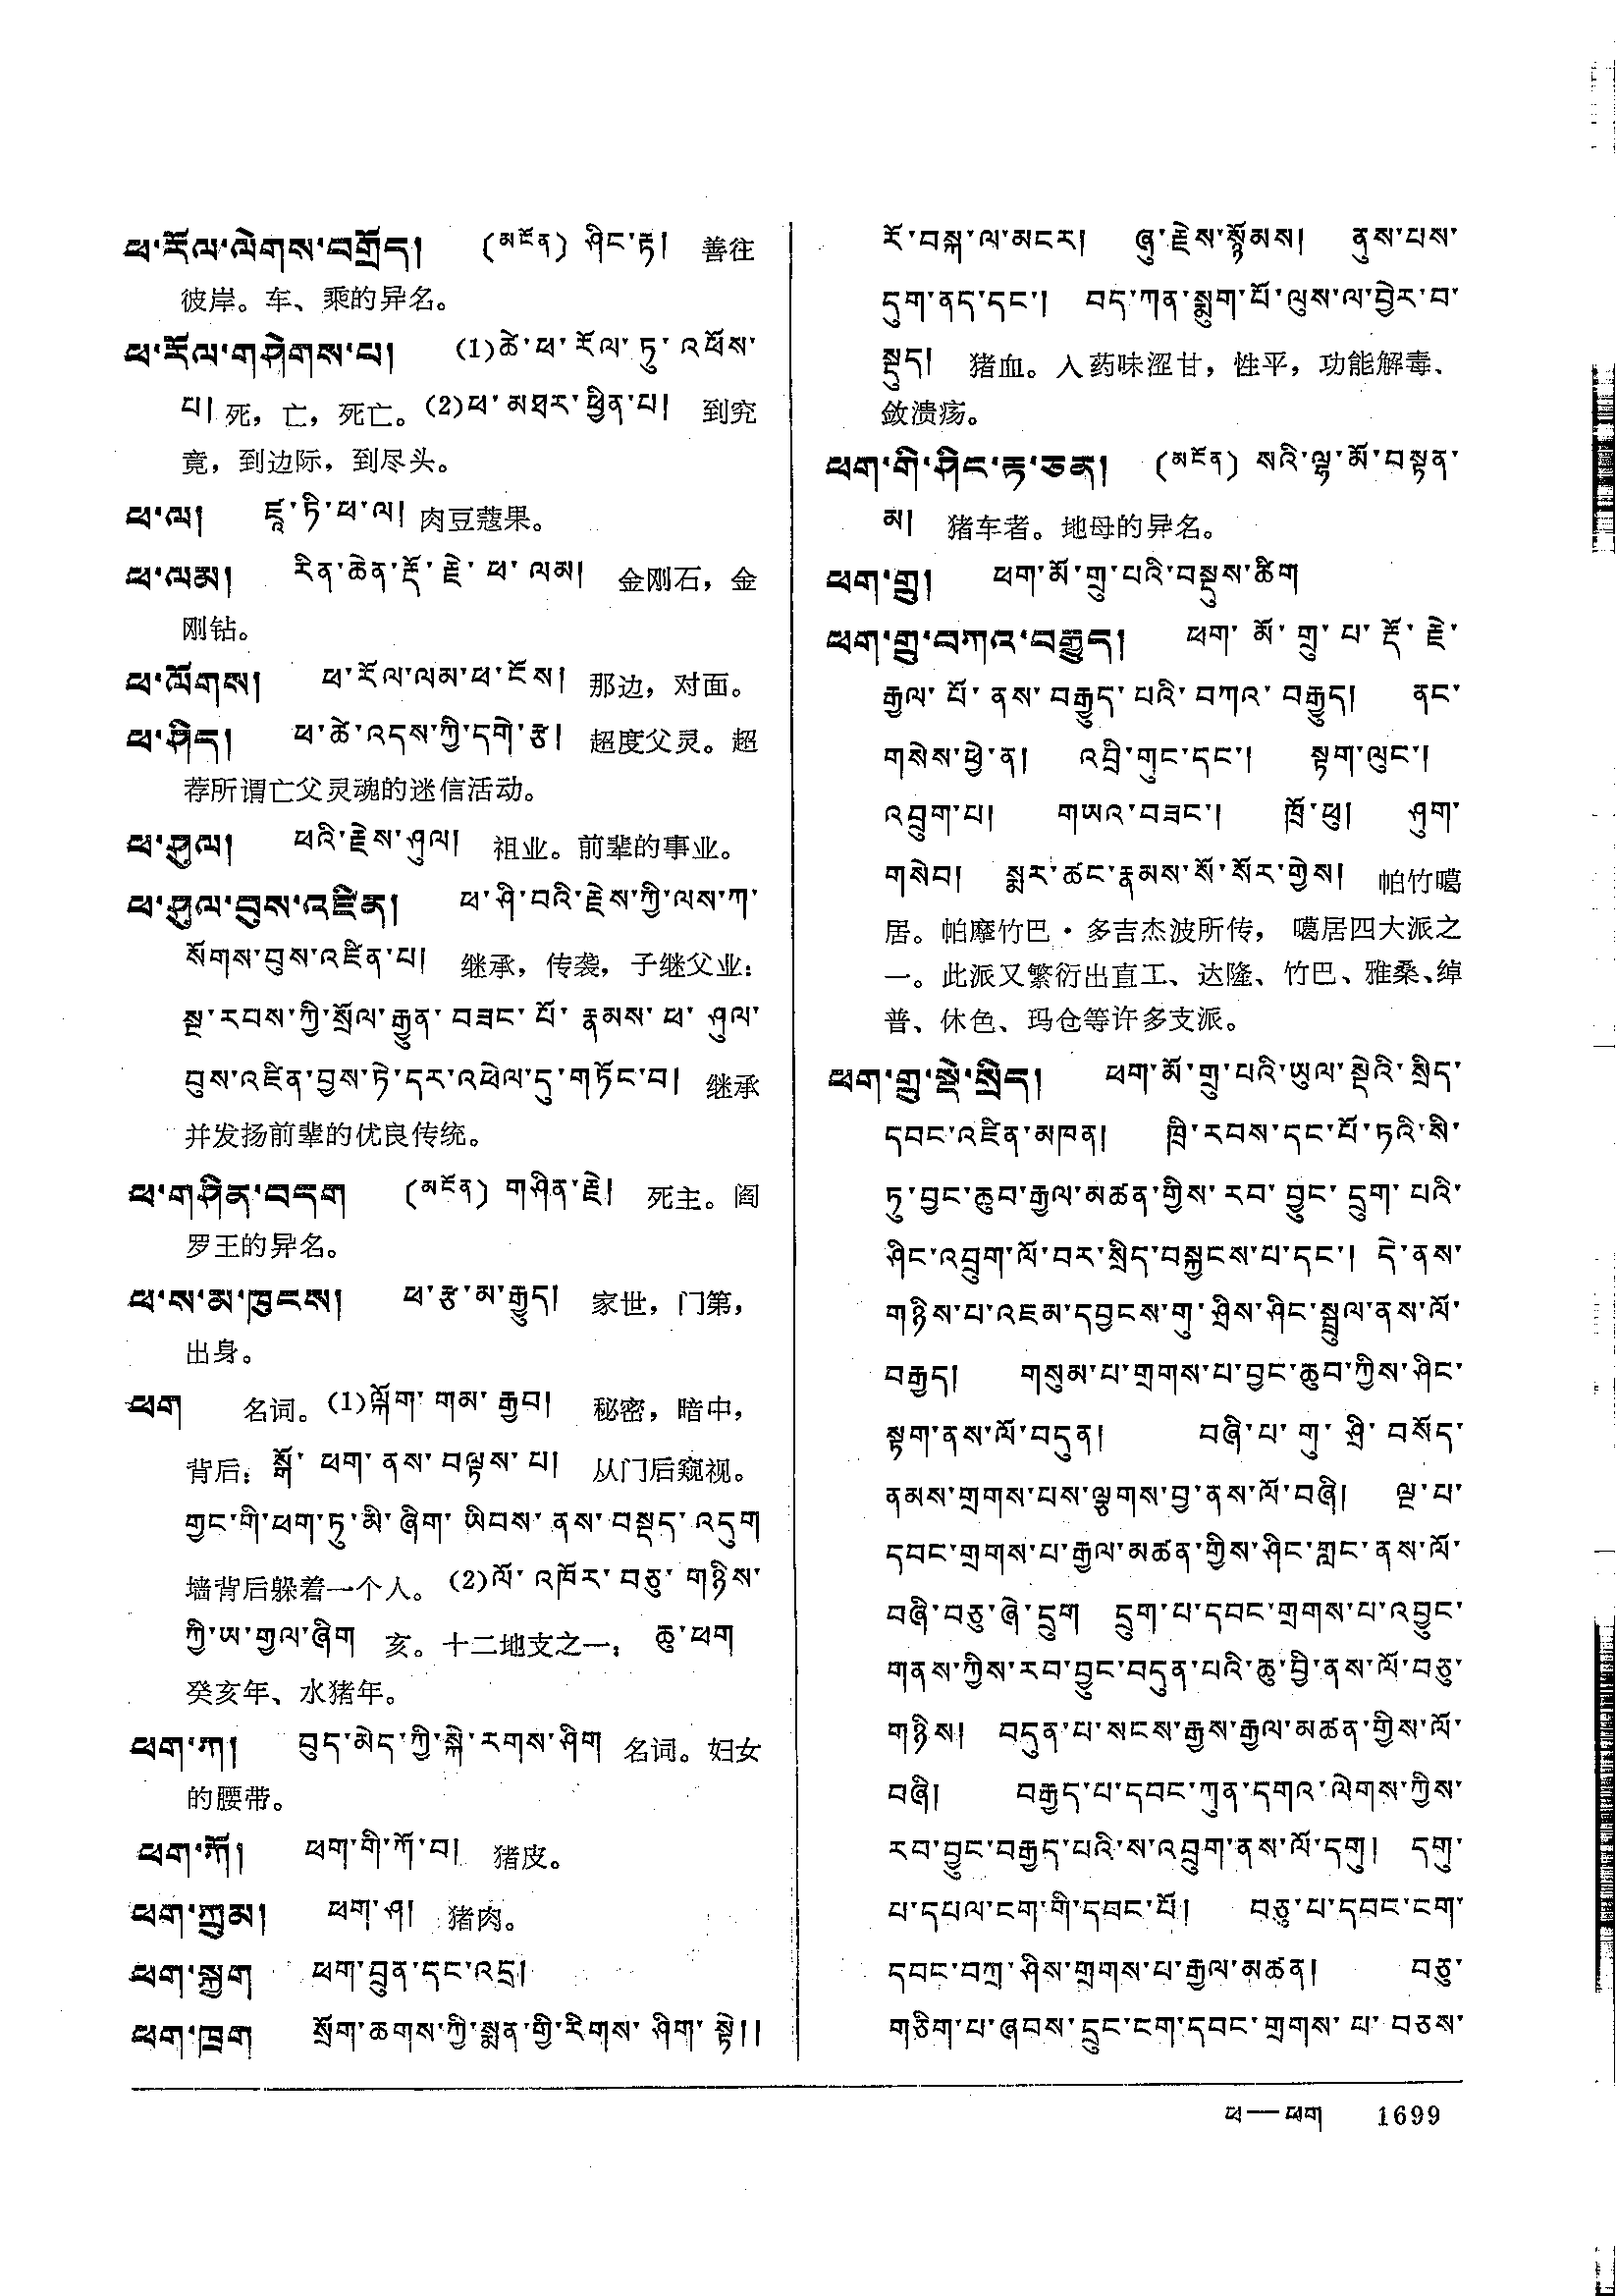 ཕ་རོལ་ལེགས་བགྲོད། (མངོན) ཤིང་རྟ། 善往
彼岸。车、乘的异名。
ཕ་རོལ་གཤེགས་པ། (1)ཚེ་ཕ་རོལ་ཏུ་འཕོས་
པ། 死，亡，死亡。(2)ཕ་མཐར་ཕྱིན་པ། 到究
竟，到边际，到尽头。
ཕ་ལ། ཛཱ་ཏི་ཕ་ལ། 肉豆蔻果。
ཕ་ལམ། རིན་ཆེན་རྡོ་རྗེ་ཕ་ལམ། 金刚石，金
刚钻。
ཕ་ལོགས། ཕ་རོལ་ལམ་ཕ་ངོས། 那边，对面。
ཕ་ཤིད། ཕ་ཚེ་འདས་ཀྱི་དགེ་རྩ། 超度父灵。超
荐所谓亡父灵魂的迷信活动。
ཕ་ཤུལ། ཕའི་རྗེས་ཤུལ། 祖业。前辈的事业。
ཕ་ཤུལ་བུས་འཛིན། ཕ་ཤི་བའི་རྗེས་ཀྱི་ལས་ཀ་
སོགས་བུས་འཛིན་པ། 继承，传袭，子继父业：
སྔ་རབས་ཀྱི་སྲོལ་རྒྱུན་བཟང་པོ་རྣམས་ཕ་ཤུལ་
བུས་འཛིན་བྱས་ཏེ་དར་འཕེལ་དུ་གཏོང་བ། 继承
并发扬前辈的优良传统。
ཕ་གཤིན་བདག (མངོན) གཤིན་རྗེ། 死主。阎
罗王的异名。
ཕ་ས་མ་ཁུངས། ཕ་རྩ་མ་རྒྱུད། 家世，门第，
出身。
ཕག 名词。(1)ལྐོག་གམ་རྒྱབ། 秘密，暗中，
背后：སྒོ་ཕག་ནས་བལྟས་པ། 从门后窥视。
གྱང་གི་ཕག་ཏུ་མི་ཞིག་ཡིབས་ནས་བསྡད་འདུག
墙背后躲着一个人。(2)ལོ་འཁོར་བཅུ་གཉིས་
ཀྱི་ཨ་གྱལ་ཞིག 亥。十二地支之一：ཆུ་ཕག
癸亥年、水猪年。
ཕག་ཀ། བུད་མེད་ཀྱི་སྐེ་རགས་ཤིག 名词。妇女
的腰带。
ཕག་ཀོ། ཕག་གི་ཀོ་བ། 猪皮。
ཕག་ཀྲུམ། ཕག་ཤ། 猪肉。
ཕག་སྐྱག ཕག་བྲུན་དང་འདྲ།
ཕག་ཁྲག སྲོག་ཆགས་ཀྱི་སྨན་གྱི་རིགས་ཤིག་སྟེ།།
རོ་བསྐ་ལ་མངར། ཞུ་རྗེས་སྙོམས། ནུས་པས་
དུག་ནད་དང་། བད་ཀན་སྨུག་པོ་ལུས་ལ་བྱེར་བ་
སྡུད། 猪血。入药味涩甘，性平，功能解毒、
敛溃疡。
ཕག་གི་ཤིང་རྟ་ཅན། (མངོན) སའི་ལྷ་མོ་བསྟན་
མ། 猪车者。地母的异名。
ཕག་གྲུ། ཕག་མོ་གྲུ་པའི་བསྡུས་ཚིག
ཕག་གྲུ་བཀའ་བརྒྱུད། ཕག་མོ་གྲུ་པ་རྡོ་རྗེ་
རྒྱལ་པོ་ནས་བརྒྱུད་པའི་བཀའ་བརྒྱུད། ནང་
གསེས་ཕྱེ་ན། འབྲི་གུང་དང་། སྟག་ལུང་།
འབྲུག་པ། གཡའ་བཟང་། ཁྲོ་ཕུ། ཤུག་
གསེབ། སྨར་ཚང་རྣམས་སོ་སོར་གྱེས། 帕竹噶
居。帕摩竹巴·多吉杰波所传，噶居四大派之
一。此派又繁衍出直工、达隆、竹巴、雅桑、绰
普、休色、玛仓等许多支派。
ཕག་གྲུ་སྡེ་སྲིད། ཕག་མོ་གྲུ་པའི་ཡུལ་སྡེའི་སྲིད་
དབང་འཛིན་མཁན། ཁྲི་རབས་དང་པོ་ཏའི་སི་
ཏུ་བྱང་ཆུབ་རྒྱལ་མཚན་གྱིས་རབ་བྱུང་དྲུག་པའི་
ཤིང་འབྲུག་ལོ་བར་སྲིད་བསྐྱངས་པ་དང་། དེ་ནས་
གཉིས་པ་འཇམ་དབྱངས་གུ་ཤྲིས་ཤིང་སྦྲུལ་ནས་ལོ་
བརྒྱད། གསུམ་པ་གྲགས་པ་བྱང་ཆུབ་ཀྱིས་ཤིང་
སྟག་ནས་ལོ་བདུན། བཞི་པ་གུ་ཤྲི་བསོད་
ནམས་གྲགས་པས་ལྕགས་བྱ་ནས་ལོ་བཞི། ལྔ་པ་
དབང་གྲགས་པ་རྒྱལ་མཚན་གྱིས་ཤིང་གླང་ནས་ལོ་
བཞི་བཅུ་ཞེ་དྲུག དྲུག་པ་དབང་གྲགས་པ་འབྱུང་
གནས་ཀྱིས་རབ་བྱུང་བདུན་པའི་ཆུ་བྱི་ནས་ལོ་བཅུ་
གཉིས། བདུན་པ་སངས་རྒྱས་རྒྱལ་མཚན་གྱིས་ལོ་
བཞི། བརྒྱད་པ་དབང་ཀུན་དགའ་ལེགས་ཀྱིས་
རབ་བྱུང་བརྒྱད་པའི་ས་འབྲུག་ནས་ལོ་དགུ། དགུ་
པ་དཔལ་ངག་གི་དབང་པོ། བཅུ་པ་དབང་ངག་
དབང་བཀྲ་ཤིས་གྲགས་པ་རྒྱལ་མཚན། བཅུ་
གཅིག་པ་ཞབས་དྲུང་ངག་དབང་གྲགས་པ་བཅས་
ཕ—ཕག 1699